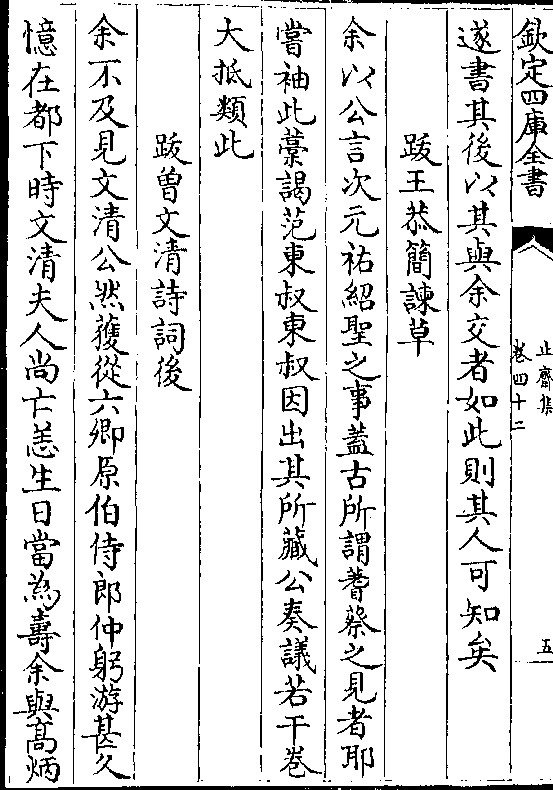 欽定四庫全書
止齋集
卷四十二
五
遂書其後以其與余交者如此則其人可知矣
跋王恭簡諫草
余以公言次元祐紹聖之事蓋古所謂蓍蔡之見者耶
嘗袖此藁謁范東叔東叔因出其所藏公奏議若干卷
大抵類此
跋曾文清詩詞後
余不及見文清公然獲從六卿原伯侍郎仲躬游甚久
憶在都下時文清夫人尚亡恙生日當為壽余與髙炳